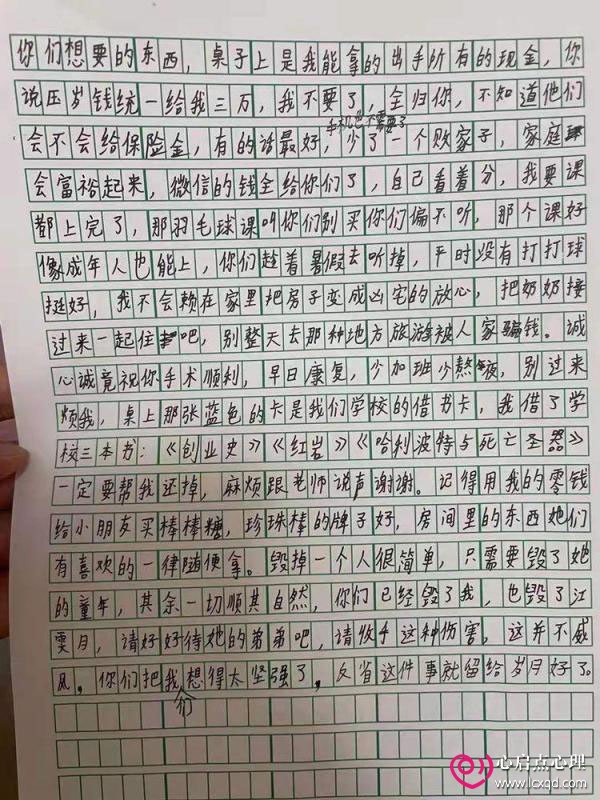 你们想要的东西，桌子上是我能拿的出手所有的现金，你
说压岁钱统一给我三万，我不要了，全归你，不知道他们
手机也不需要了
会不会给保险金，有的话最好，少了一个败家子，家庭
会富裕起来，微信的钱全给你们了，自己看着分，我要课
都上完了，那羽毛球课叫你们别买你们偏不听，那个课好
像成年人也能上，你们趁着暑假去听掉，平时没有打打球
挺好，我不会赖在家里把房子变成凶宅的放心，把奶奶接
过来一起住吧，别整天去那种地方旅游被人家骗钱。诚
心诚意祝你手术顺利，早日康复，少加班少熬夜，别过来
烦我，桌上那张蓝色的卡是我们学校的借书卡，我借了学
校三本书：《创业史》《红岩》《哈利波特与死亡圣器》
一定要帮我还掉，麻烦跟老师说声谢谢。记得用我的零钱
给小朋友买棒棒糖，珍珠棒的牌子好，房间里的东西她们
有喜欢的一律随便拿。毁掉一个人很简单，只需要毁了她
的童年，其余一切顺其自然，你们已经毁了我，也毁了江
雯月，请好好待她的弟弟吧，请收手这种伤害，这并不威
风，你们把我们想得太坚强了，反省这件事就留给岁月好了。
心启点心理
www.lcxgd.com